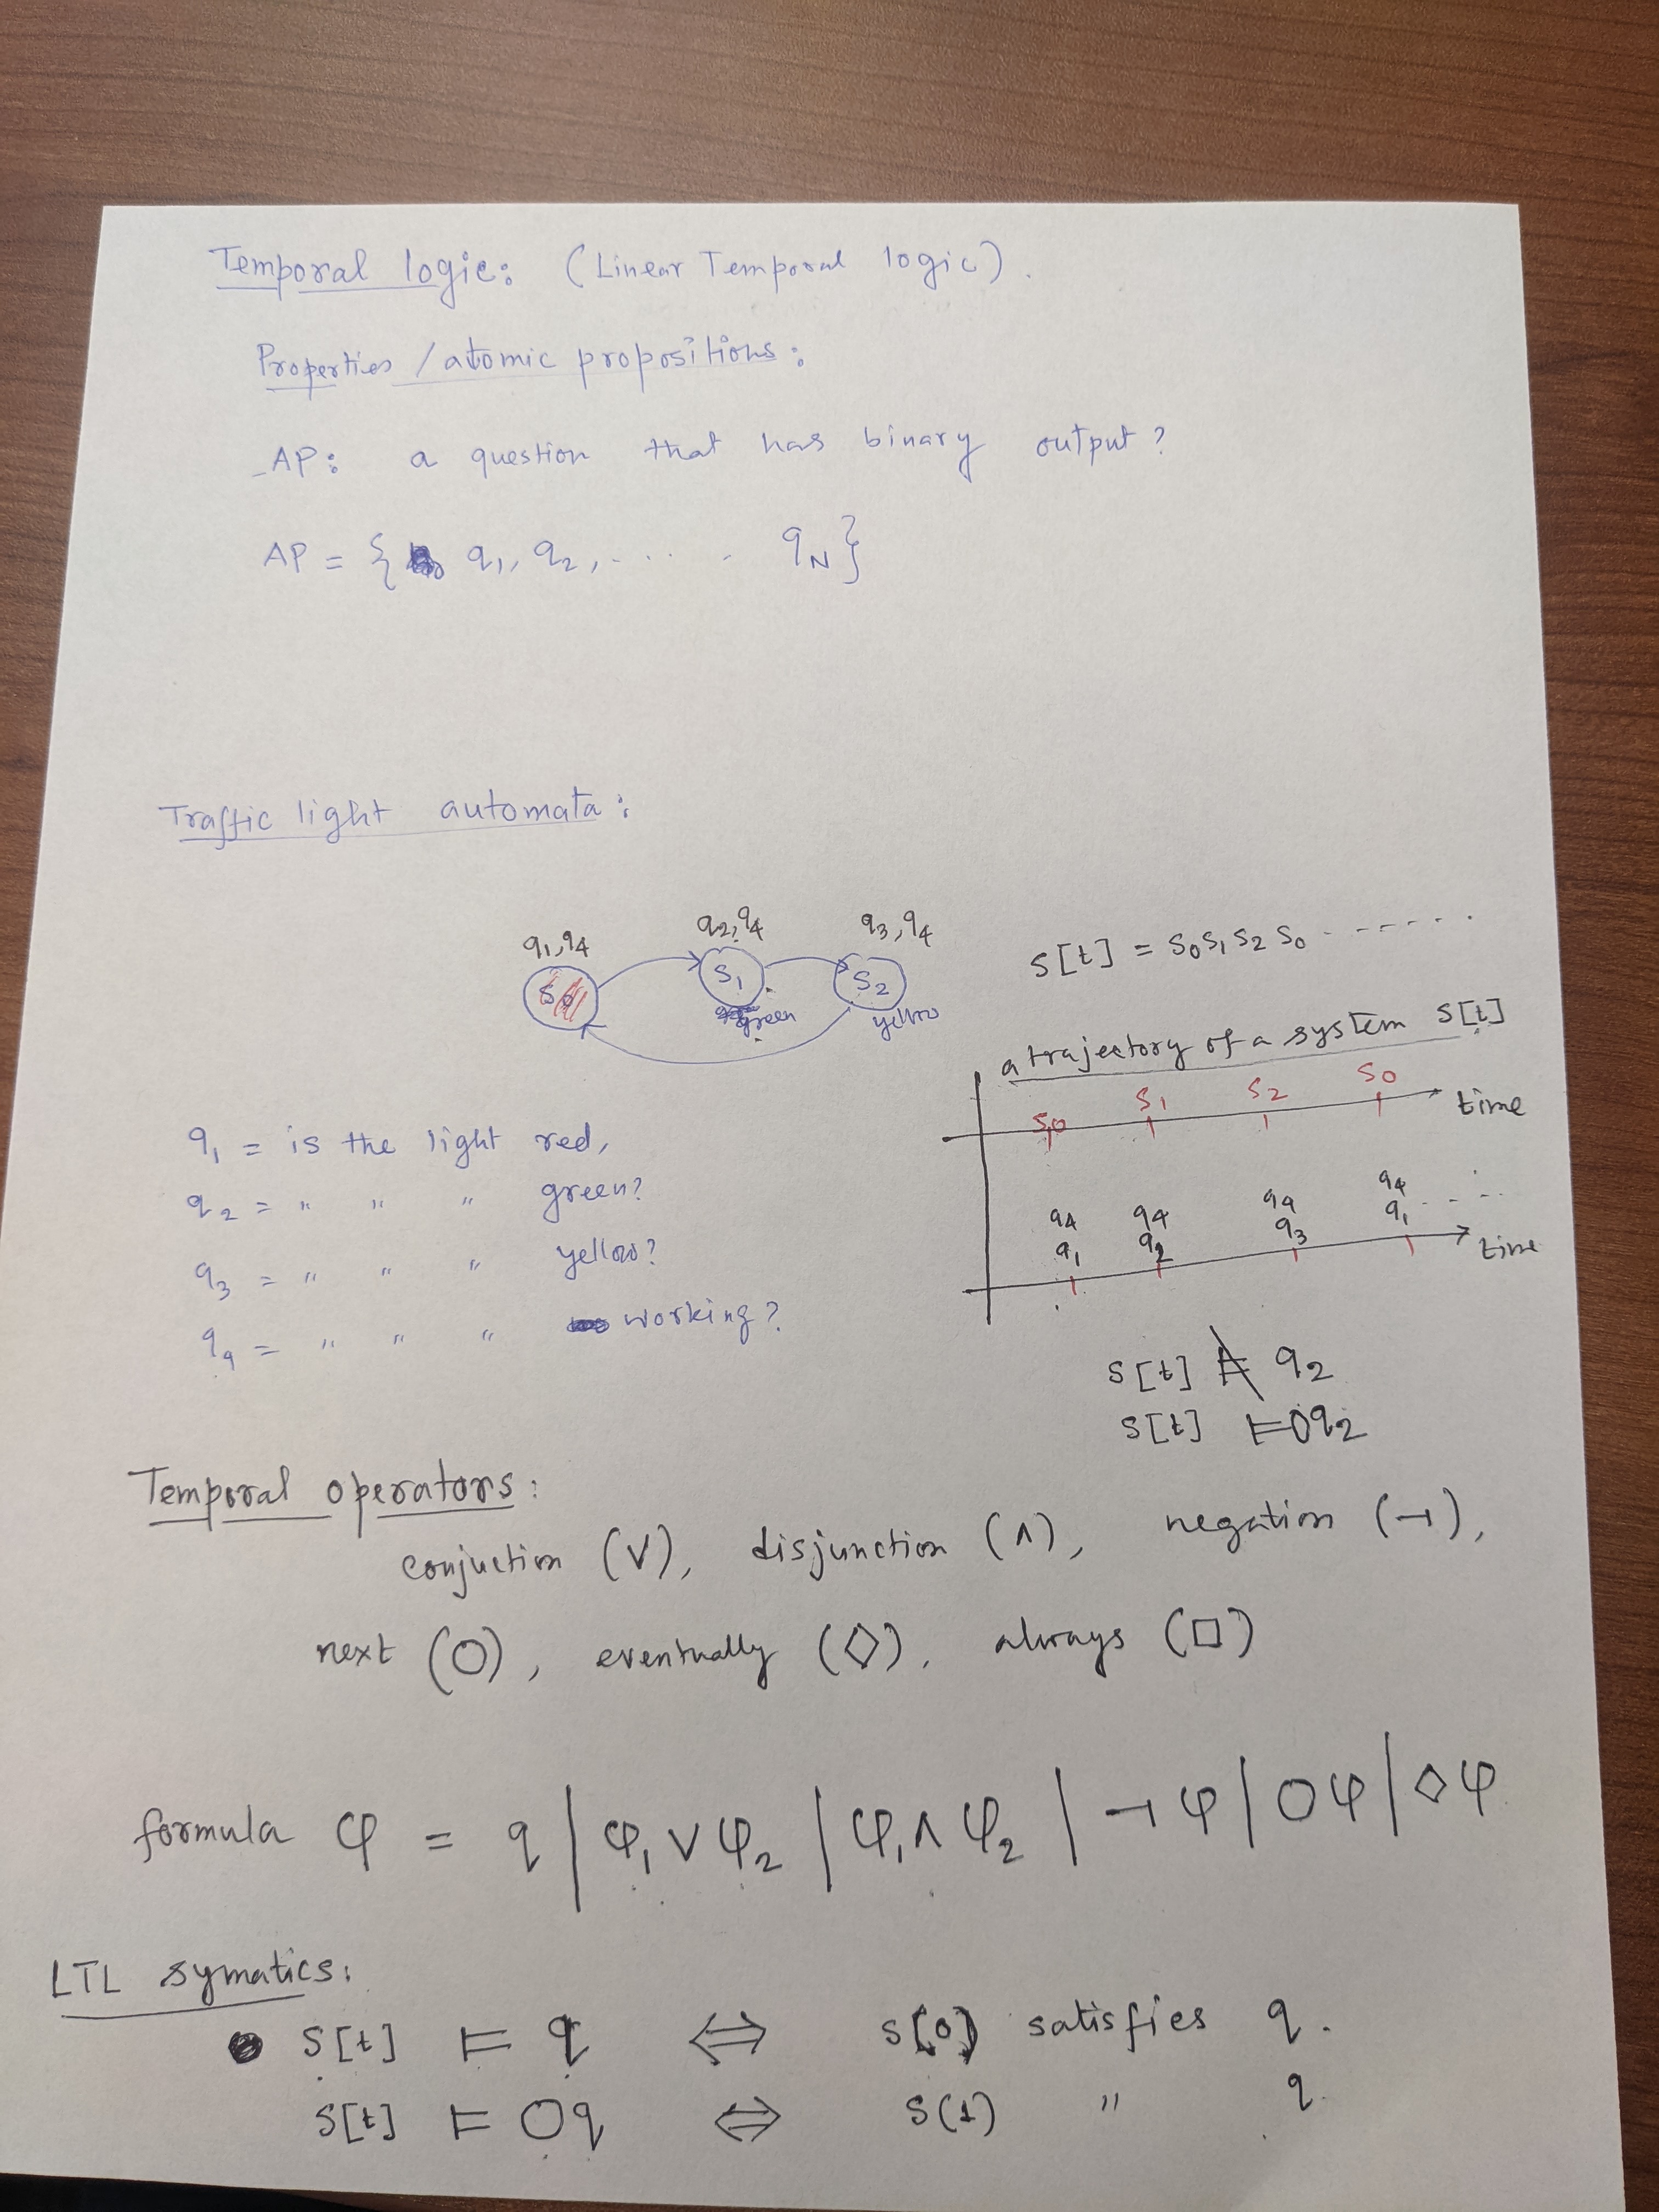 Temporal logic: (Linear Temporal logic).
Properties / atomic propositions:
AP: a question that has binary output?
AP = { q₁, q₂, . . . . q_N }
Traffic light automata:
q₁,q₄ q₂,q₄ q₃,q₄
S₀ S₁ S₂
green yellow
S[t] = S₀S₁S₂S₀ - - - - - .
a trajectory of a system S[t]
S₀ S₁ S₂ S₀ time
q₄ q₄ q₄ q₄
q₁ q₂ q₃ q₁ . - - . time
q₁ = is the light red,
q₂ = " " " green?
q₃ = " " " yellow?
q₄ = " " " working?
S[t] ⊭ q₂
S[t] ⊨ ○q₂
Temporal operators:
conjuction (∨), disjunction (∧), negation (¬),
next (○), eventually (◇), always (□)
formula φ = q | φ₁ ∨ φ₂ | φ₁ ∧ φ₂ | ¬φ | ○φ | ◇φ
LTL symatics:
S[t] ⊨ q ⇔ S(0) satisfies q.
S[t] ⊨ ○q ⇔ S(1) " q.